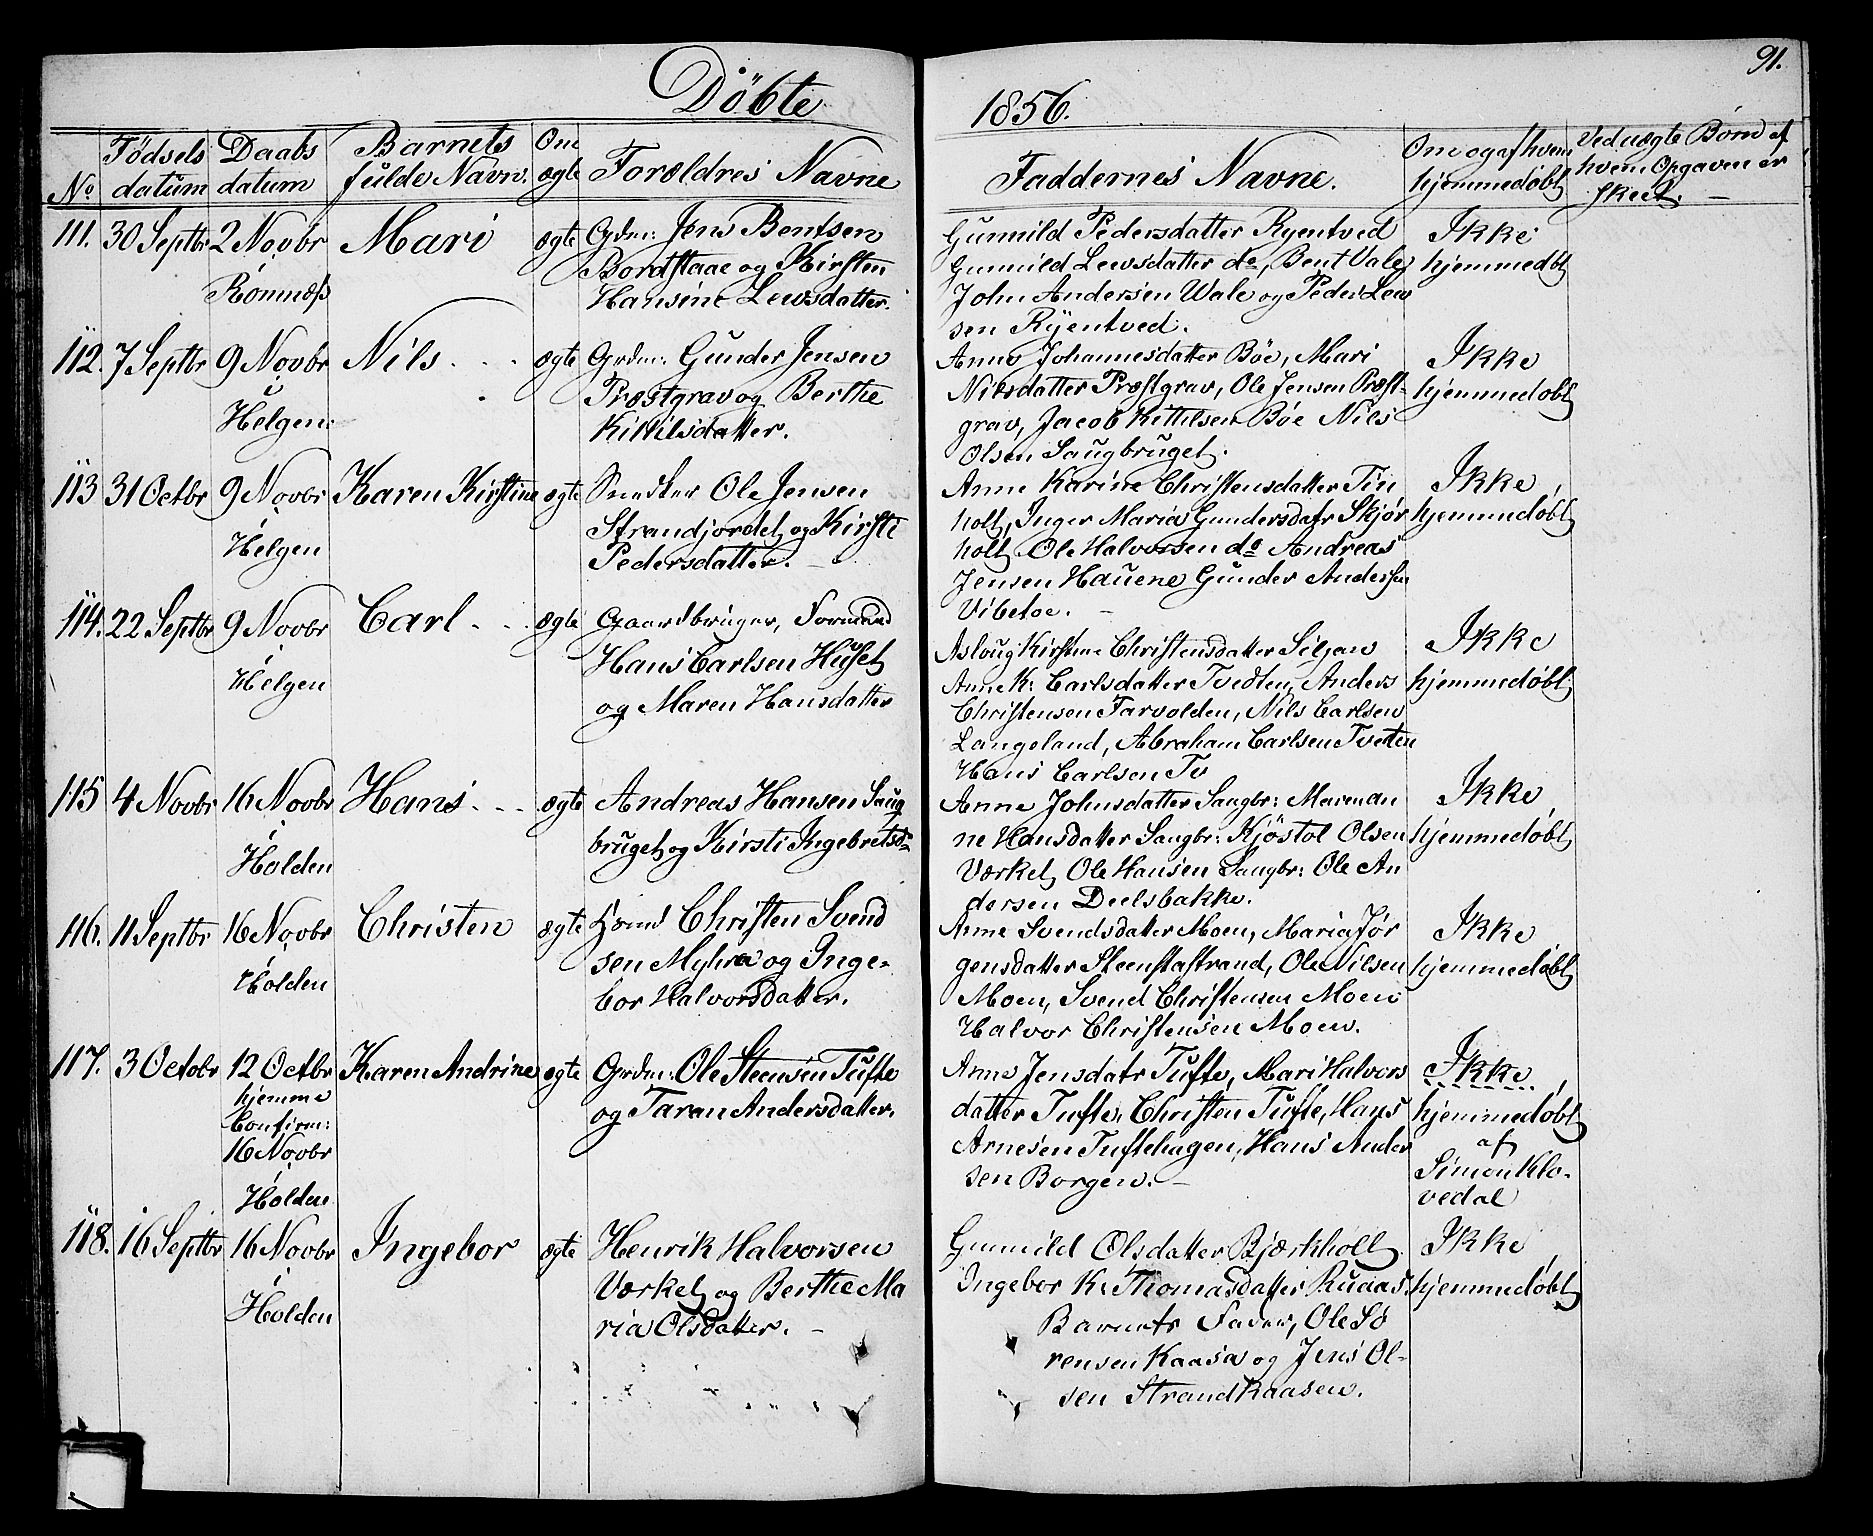 Döbte
1856.
91.
No
Födsels datum
Daabs datum
Barnets fulde Navn.
Om ægte
Forældres Navne
Faddernes Navne.
Om og af hvem hjemmedøbt
Ved uægte Børn af hvem Opgaven er skeet. —
111. 30 Septbr 2 Novbr Mari ægte Grdm: Jens Bentsen
Rømnæs
Bordstaae og Kirsten
Hansine Lewsdatter.
Gunnild Pedersdatter Ryentved
Gunnild Lewsdatter do, Bent Vale
John Andersen Wale og Peder Lew
sen Ryentved.
Ikke
hjemmedøbt
112. 7 Septbr 9 Novbr Nils ægte Grdm: Gunder Jensen
i
Helgen
Præstgrav og Berthe
Kittilsdatter.
Anne Johannesdatter Böe, Mari
Nilsdatter Præstgrav, Ole Jensen Præst-
grav, Jacob Kittilsen Böe Nils
Olsen Saugbruget.
Ikke
hjemmedøbt
113 31 Octbr 9 Novbr Karen Kirstine ægte Snedker Ole Jensen
i
Helgen
Strandjordet og Kirsti
Pedersdatter. —
Anne Karine Christensdatter Tin
holt, Inger Maria Gundersdatr Skjør
holt Ole Halvorsen do Andreas
Jensen Hauene Gunder Andersen
Vibetoe. —
Ikke
hjemmedøbt
114. 22 Septbr 9 Novbr Carl ægte Gaardbruger, Formand
i
Helgen
Hans Carlsen Huset
og Maren Hansdatter
Asloug Kirstine Christensdatter Siljan
Anne K: Carlsdatter Tvedten, Anders
Christensen Farvolden, Nils Carlsen
Langeland, Abraham Carlsen Tveten
Hans Carlsen Tv
Ikke
hjemmedøbt
115 4 Novbr 16 Novbr Hans ægte Andreas Hansen Saug
i
Holden
bruget og Kirsti Ingebretsd:
Anne Johnsdatter Saugbr: Marman
ne Hansdatter Saugbr: Kjöstol Olsen
Værket, Ole Hansen Saugbr: Ole An
dersen Deelsbakke.
Ikke
hjemmedøbt
116. 11 Septbr 16 Novbr Christen ægte Christen Svend
i
Holden
sen Myhra og Inge-
bor Halvorsdatter.
Anne Svendsdatter Moen, Maria Jør
gensdatter Steenstastrand, Ole Nilsen
Moen, Svend Christensen Moen
Halvor Christensen Moen.
Ikke
hjemmedøbt
117. 3 Octobr 12 Octbr Karen Andrine ægte Grdm: Ole Steensen Tufte
hjemme
Confirm:
16 Novbr
i
Holden
og Taran Andersdatter.
Anne Jensdatr Tufte, Mari Halvors
datter Tufte, Christen Tufte, Hans
Arnesen Tuftehagen, Hans Ander
sen Borgen. —
Ikke
hjemmedøbt
af
Simon Klo-
vedal
118. 16 Septbr 16 Novbr Ingebor ægte Henrik Halvorsen
i
Holden
Værket og Berthe Ma
ria Olsdatter. —
Gunnild Olsdatter Bjærkholt
Ingebor K: Thomasdatter Ruaas
Barnets Fader, Ole Sö
rensen Kaasa og Jens Ol-
sen Strandkaasen.
Ikke
hjemmedøbt